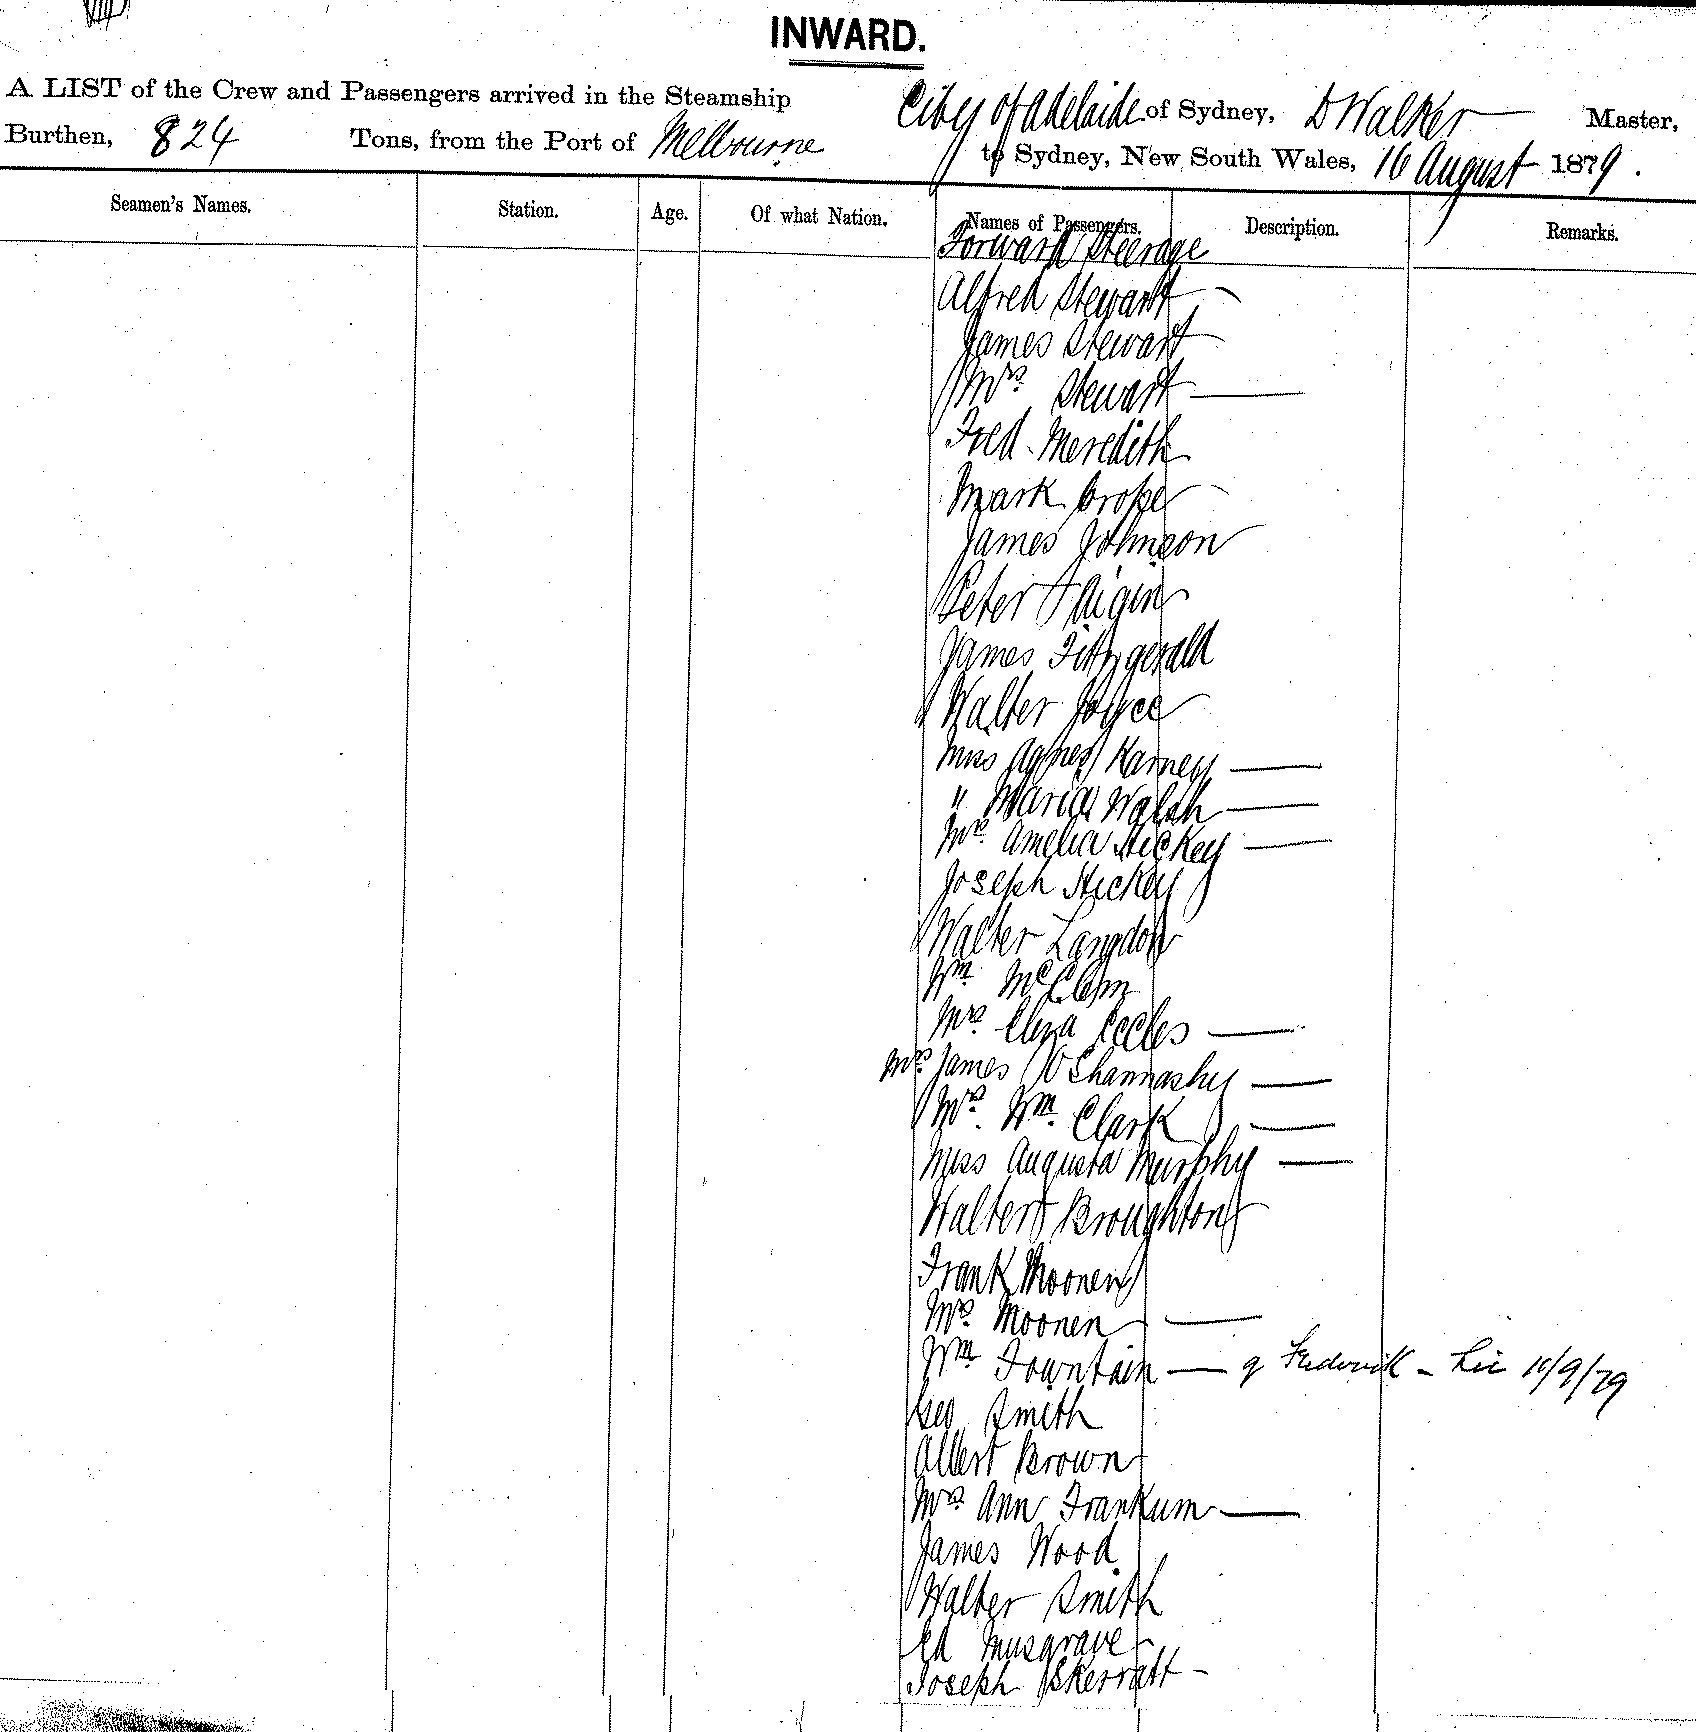 INWARD.
A LIST of the Crew and Passengers arrived in the Steamship City of Adelaide of Sydney, D Walker Master,
Burthen, 824 Tons, from the Port of Melbourne to Sydney, New South Wales, 16 August 1879.
Seamen's Names. Station. Age. Of what Nation. Names of Passengers. Description. Remarks.
Forward Steerage
Alfred Stewart
James Stewart
Mrs Stewart
Fred Meredith
Mark Croke
James Johnson
Peter Haigin
James Fitzgerald
Walter Joyce
Miss Agnes Karney
" Maria Walsh
Mrs. Amelia Hickey
Joseph Hickey
Walter Langdon
Wm
Mrs. Eliza Eccles
Mrs. James O'Shannashy
Mrs. Wm. Clark
Miss Augusta Murphy
Walter Broughton
Frank Moonen
Mrs. Moonen
Wm Fountain — Frederick - Lic 11/9/79
Geo Smith
Albert Brown
Mrs. Ann Frankum
James Wood
Walter Smith
Ed Musgrave
Joseph Skerratt